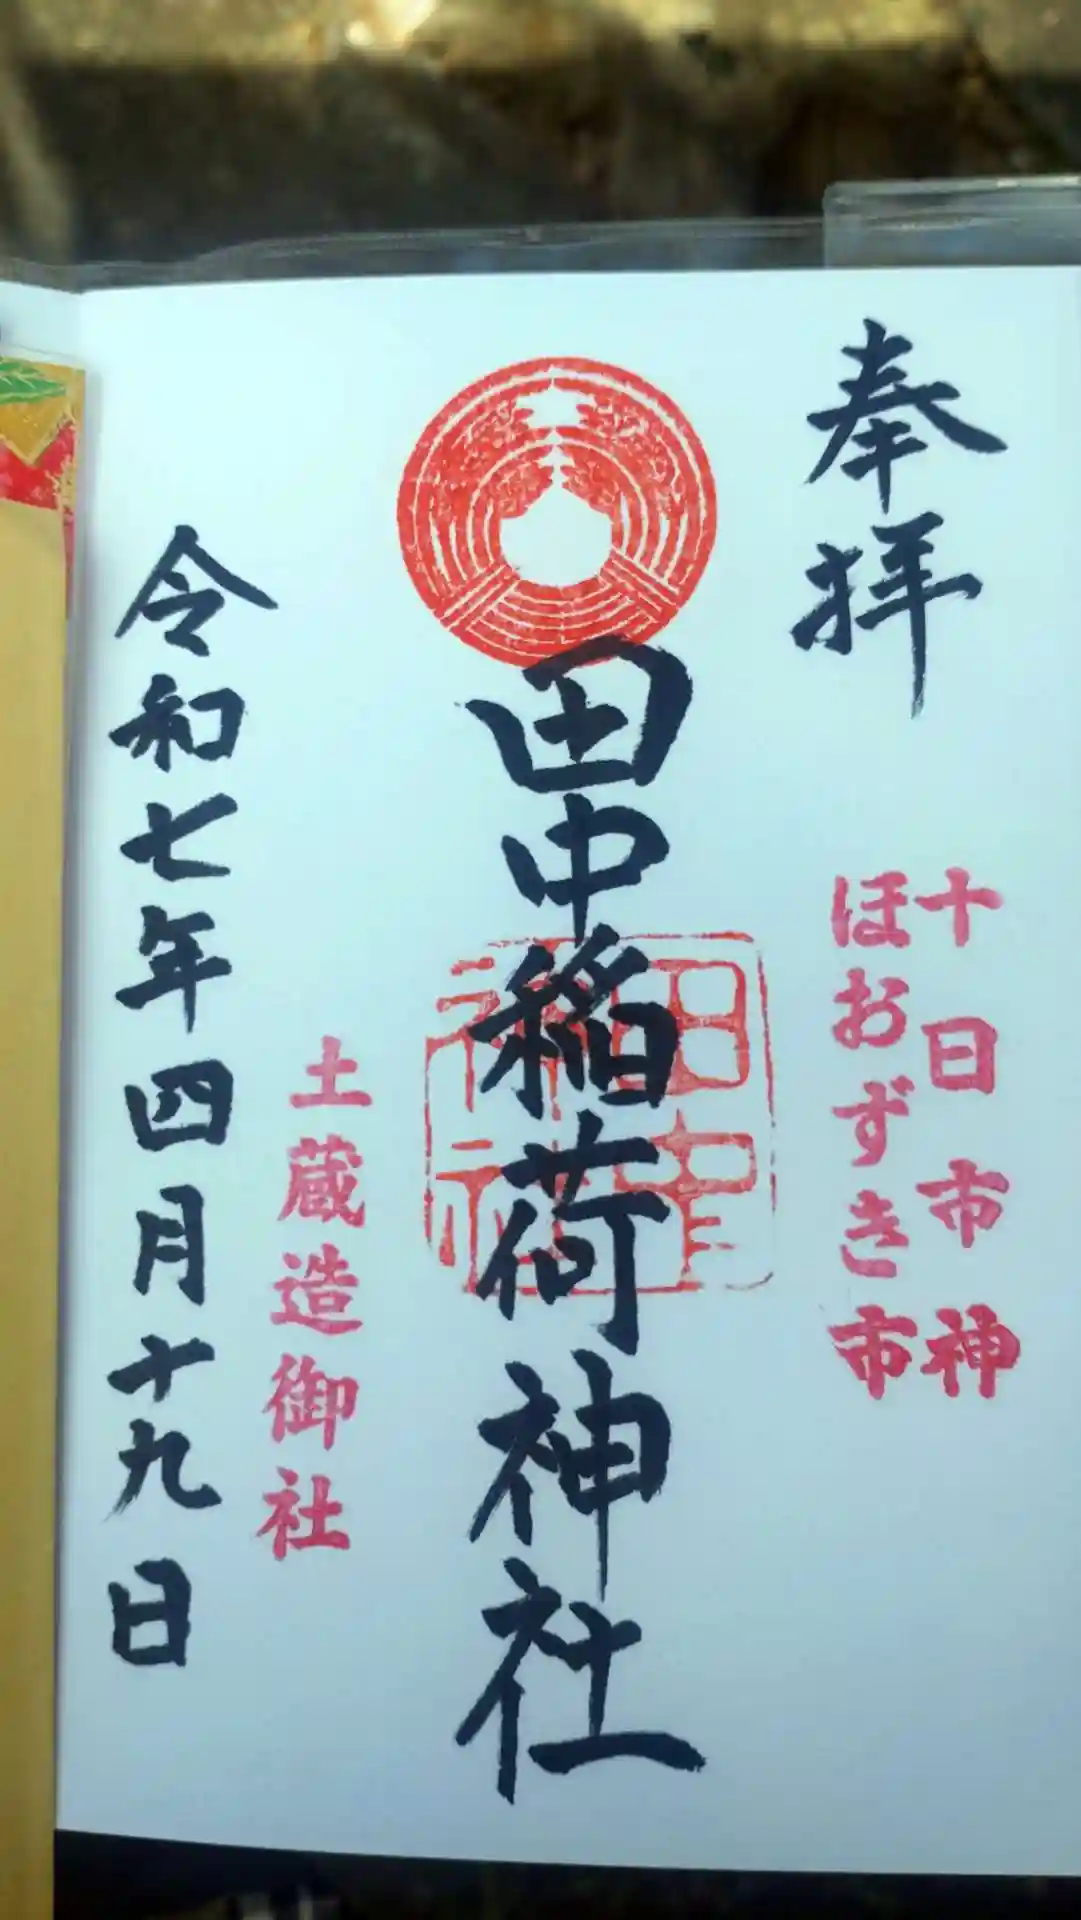 奉拝
十日市神
ほおずき市
田中稲荷神社
土蔵造御社
令和七年四月十九日